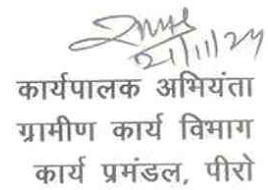 21/11/24
कार्यपालक अभियंता
ग्रामीण कार्य विभाग
कार्य प्रमंडल, पीरो